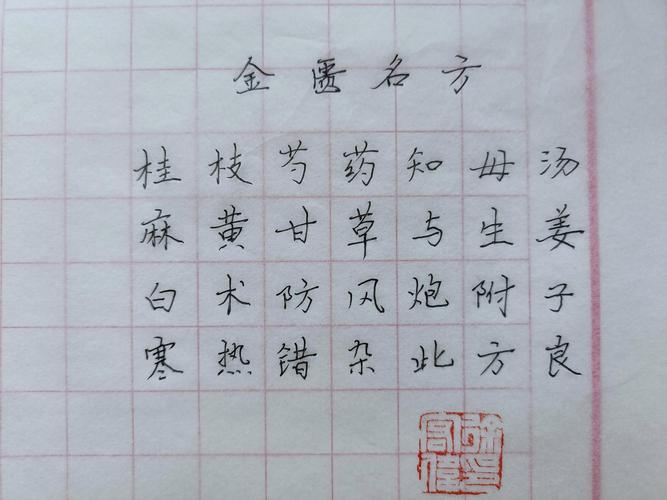 金匮名方
桂枝芍药知母汤
麻黄甘草与生姜
白术防风炮附子
寒热错杂此方良